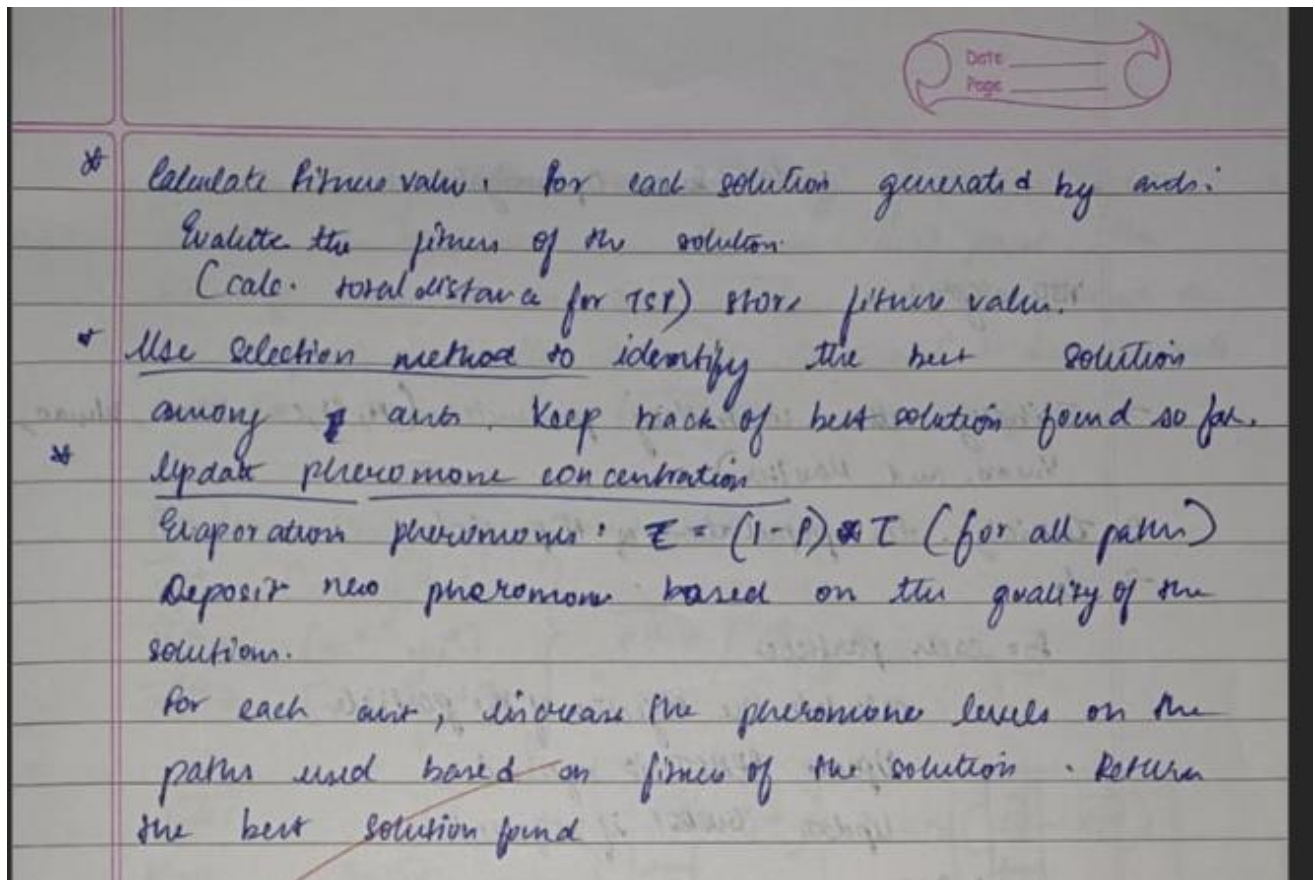 Date
Page
* Calculate fitness value. for each solution generated by ants:
Evaluate the fitness of the solution.
(calc. total distance for TSP) store fitness value.
* Use selection method to identify the best solution
among ants. Keep track of best solution found so far.
* Update pheromone concentration
Evaporation pheromone: τ = (1-ρ) * τ (for all paths)
Deposit new pheromone based on the quality of the
solutions.
For each ant, increase the pheromone levels on the
paths used based on fitness of the solution. Return
the best solution found